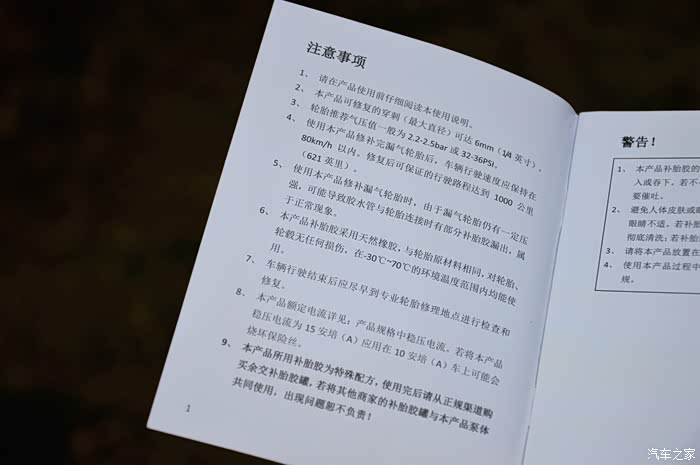 注意事项
1、 请在产品使用前仔细阅读本使用说明。
2、 本产品可修复的穿刺（最大直径）可达 6mm（1/4 英寸）。
3、 轮胎推荐气压值一般为 2.2-2.5bar 或 32-36PSI。
4、 使用本产品修补完漏气轮胎后，车辆行驶速度应保持在
80km/h 以内。修复后可保证的行驶路程达到 1000 公里
（621 英里）。
5、 使用本产品修补漏气轮胎时，由于漏气轮胎仍有一定压
强，可能导致胶水管与轮胎连接时有部分补胎胶漏出，属
于正常现象。
6、 本产品补胎胶采用天然橡胶，与轮胎原材料相同，对轮胎、
轮毂无任何损伤，在-30℃~70℃的环境温度范围内均能使
用。
7、 车辆行驶结束后应尽早到专业轮胎修理地点进行检查和
修复。
8、 本产品额定电流详见：产品规格中稳压电流。若将本产品
稳压电流为 15 安培（A）应用在 10 安培（A）车上可能会
烧坏保险丝。
9、 本产品所用补胎胶为特殊配方，使用完后请从正规渠道购
买余交补胎胶罐，若将其他商家的补胎胶罐与本产品泵体
共同使用，出现问题恕不负责！
1
警告！
1、 本产品补胎胶的
入或吞下。若不
要催吐。
2、 避免人体皮肤或眼
眼睛不适。若补胎
彻底清洗；若补胎
3、 请将本产品放置在
4、 使用本产品过程中
规。
汽车之家